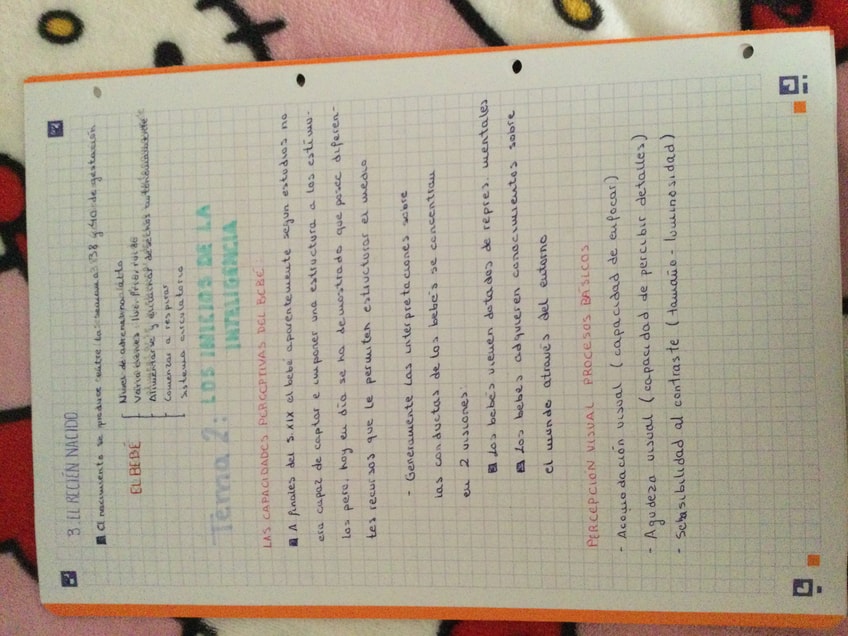 3. EL RECIÉN NACIDO
El nacimiento se produce entre la semana 38 y 40 de gestación
EL BEBÉ
Nivel de adrenalina alto
Variaciones luz, frío, ruido
Alimentarse y eliminar desechos autónomamente
Comenzar a respirar
Sistema circulatorio
Tema 2: LOS INICIOS DE LA
INTELIGENCIA
LAS CAPACIDADES PERCEPTIVAS DEL BEBÉ
A finales del s. XIX el bebé aparentemente según estudios no
era capaz de captar e imponer una estructura a los estímu-
los pero, hoy en día se ha demostrado que posee diferen-
tes recursos que le permiten estructurar el medio
- Generamente las interpretaciones sobre
las conductas de los bebés se concentran
en 2 visiones:
Los bebés vienen dotados de repres. mentales
Los bebés adquieren conocimientos sobre
el mundo através del entorno
PERCEPCIÓN VISUAL PROCESOS BÁSICOS
- Acomodación visual (capacidad de enfocar)
- Agudeza visual (capacidad de percibir detalles)
- Sensibilidad al contraste (tamaño - luminosidad)